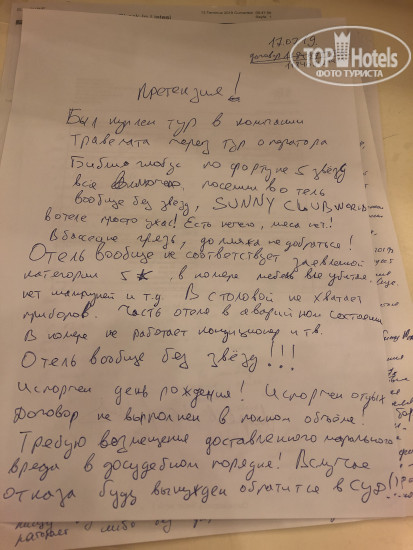 TOP Hotels
ФОТО ТУРИСТА
17.07.19
Претензия!
Был куплен тур в компании
Травелата через тур оператора
Библио глобус по фортуне 5 звёзд
все включено. поселили в отель
вообще без звёзд, SUNNY CLUB WORLD
в отеле просто ужас! Есть нечего, мяса нет!
В бассейне грязь, до пляжа не добраться!
Отель вообще не соответствует заявленой
категории 5★. в номере мебель вся убитая
нет шампуней и т.д. В столовой не хватает
приборов. Часть отеля в аварийном состоянии
В номере не работает кондиционер и тв.
Отель вообще без звёзд!!!
Испорчен день рождения! Испорчен отдых
Договор не выполнен в полном объёме!
Требую возмещения доставленного морального
вреда в досудебном порядке! В случае
отказа буду вынужден обратится в суд